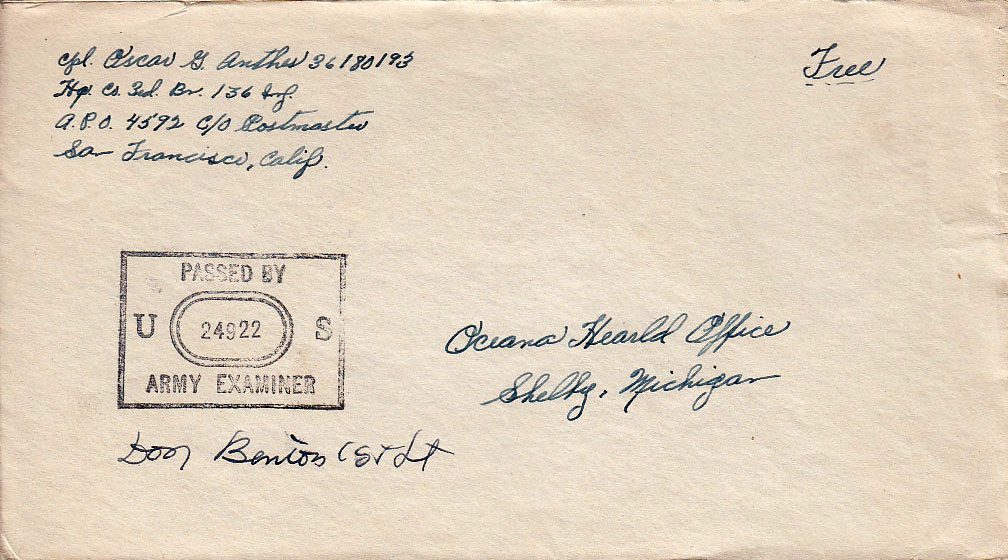 Cpl. Oscar G. Anthes 36180193
Hq. Co. 3rd. Bn. 136 Inf.
A.P.O. 4592 C/O Postmaster
San Francisco, Calif.
Free
PASSED BY
U 24922 S
ARMY EXAMINER
Oceana Hearld Office
Shelby, Michigan
Don Benton 1st Lt